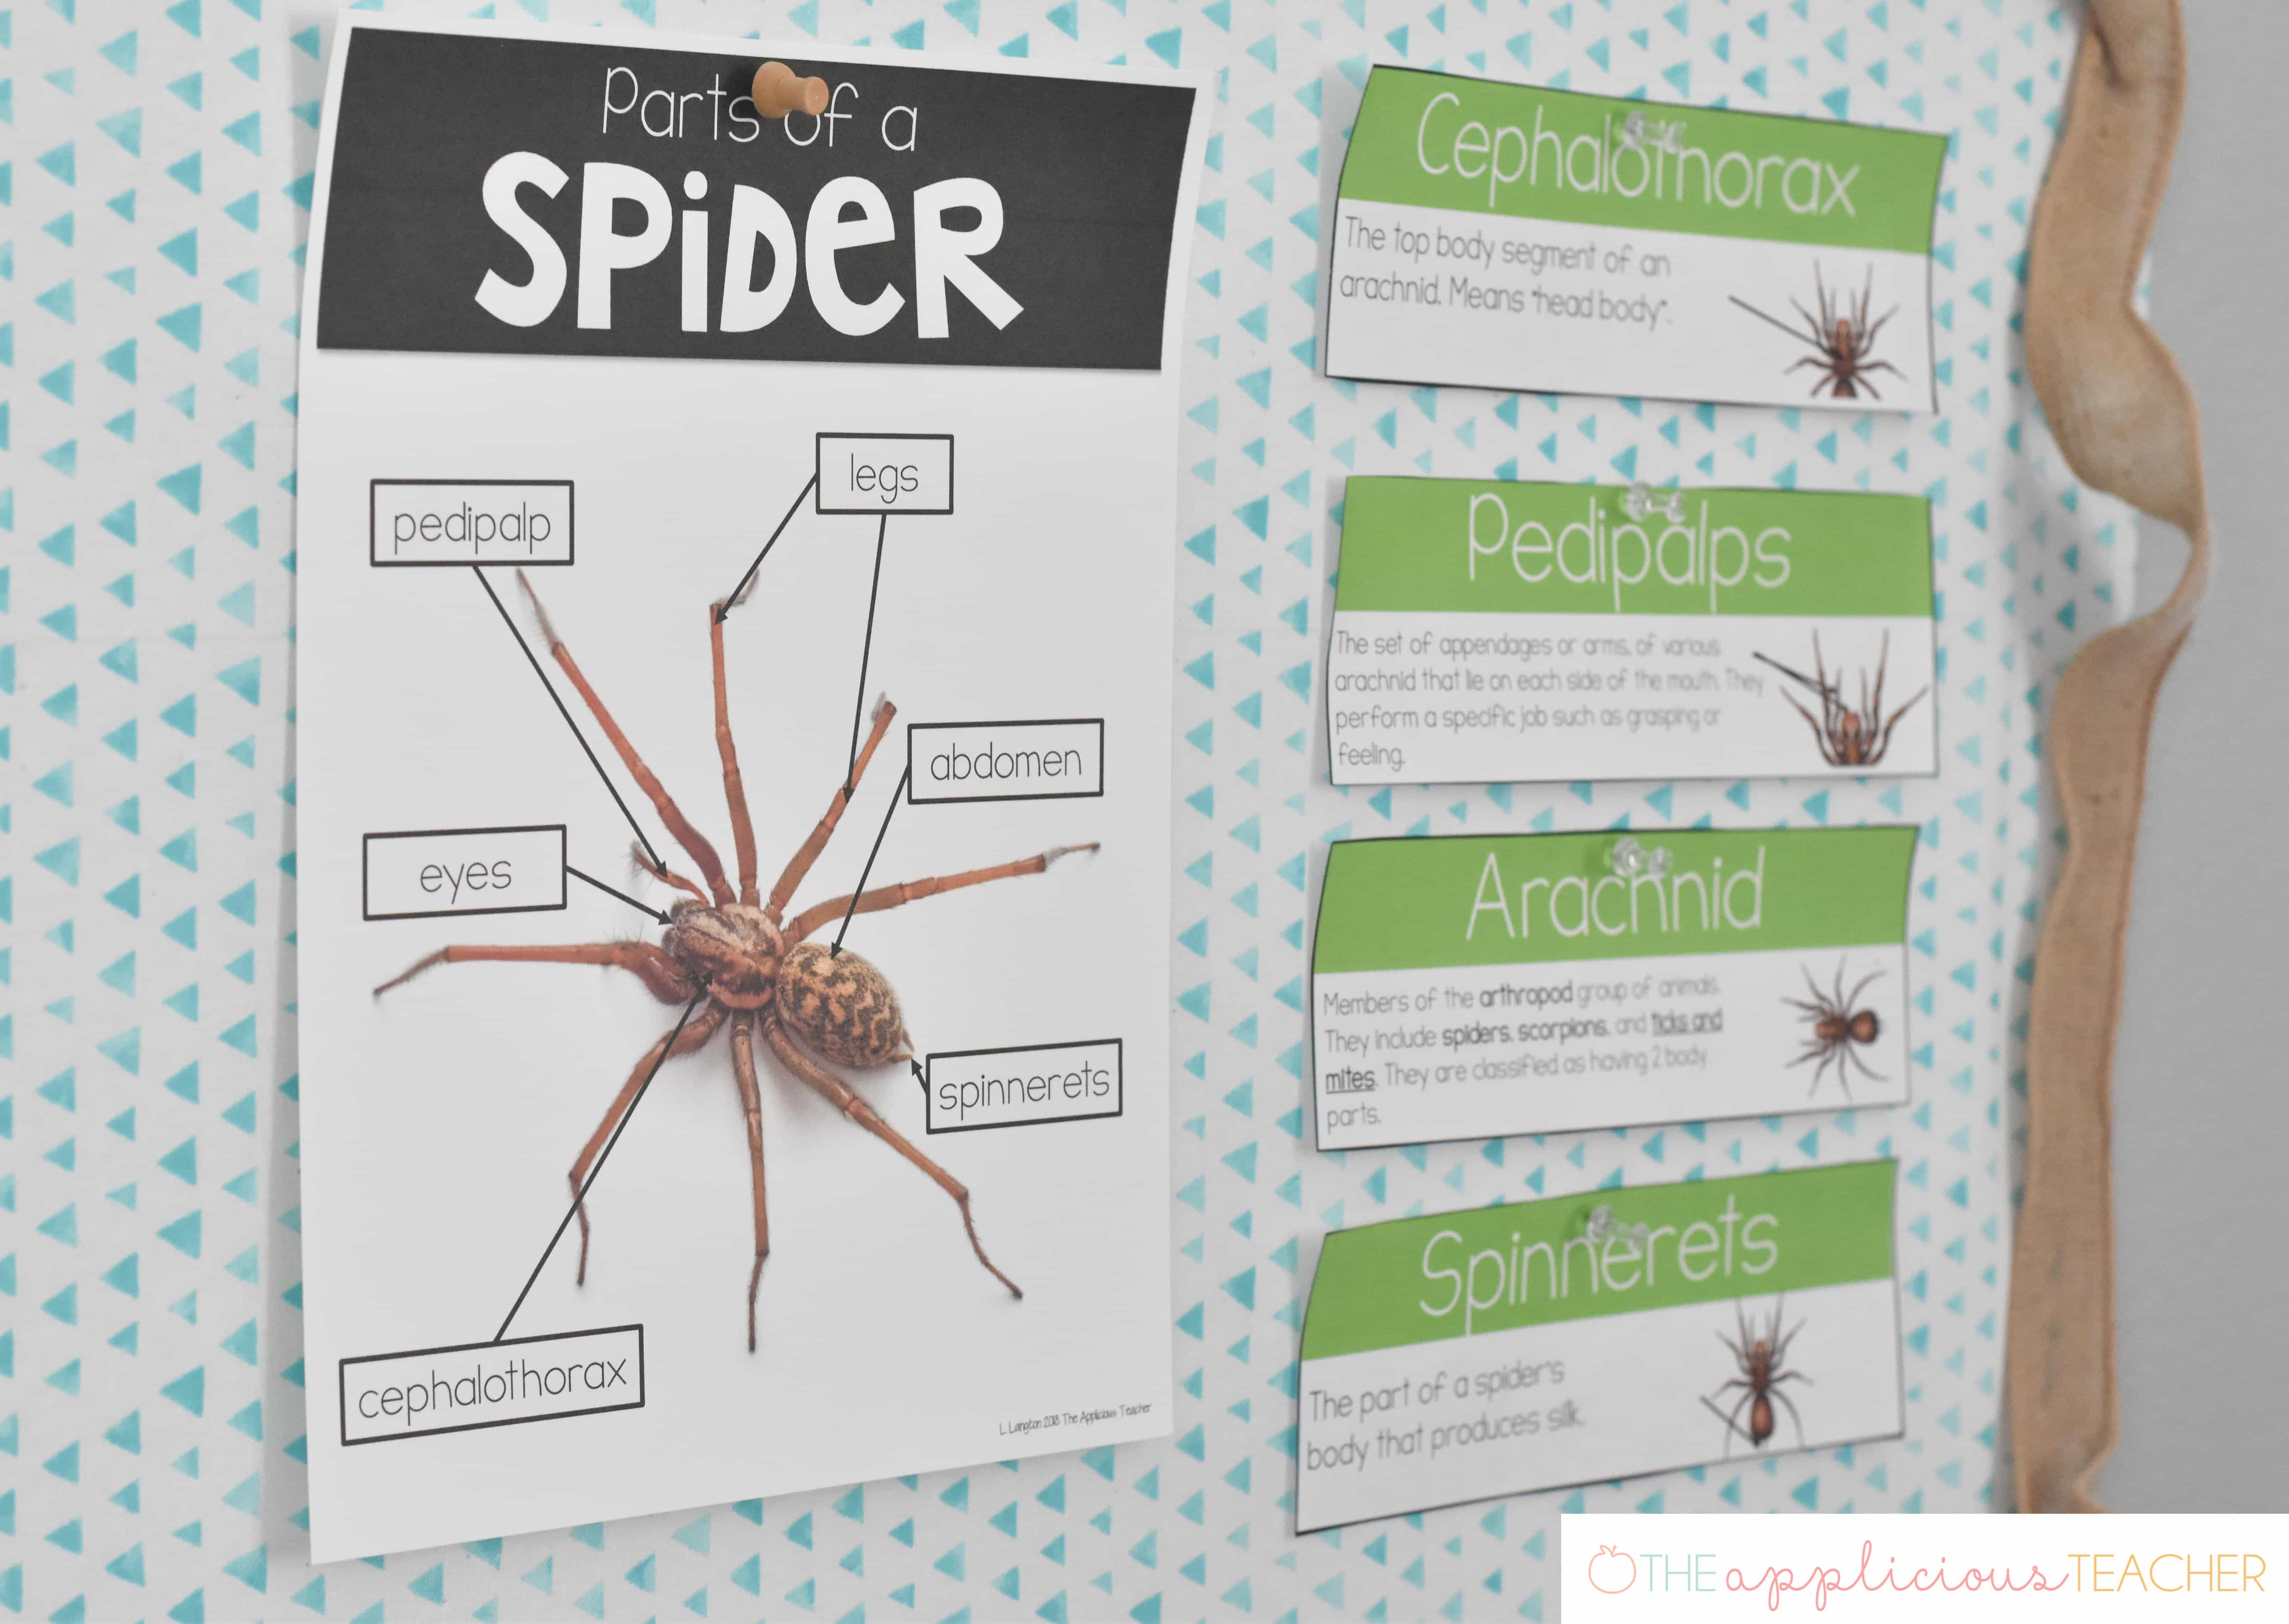 Parts of a
SPiDeR
pedipalp
legs
abdomen
eyes
spinnerets
cephalothorax
L. Langton 2018 The Applicious Teacher
Cephalothorax
The top body segment of an
arachnid. Means "head body".
Pedipalps
The set of appendages or arms, of various
arachnid that lie on each side of the mouth. They
perform a specific job such as grasping or
feeling.
Arachnid
Members of the arthropod group of animals.
They include spiders, scorpions, and ticks and
mites. They are classified as having 2 body
parts.
Spinnerets
The part of a spider's
body that produces silk.
THE applicious TEACHER